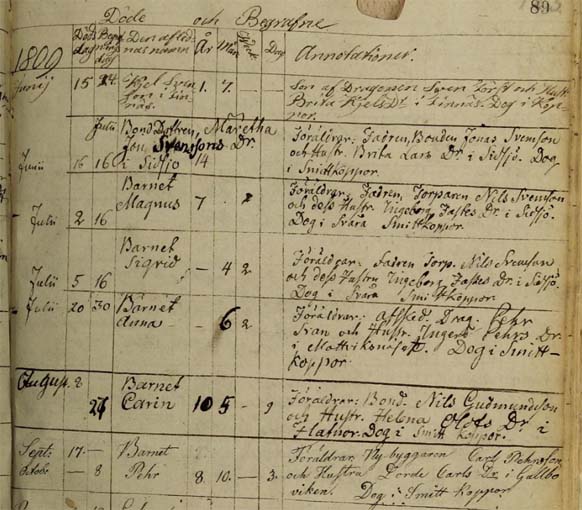 89
Döde och Begrafne
1809
Döds dag Begr. dag Den aflednas namn År Mån. Weck Dag Annotationer.
Junij 15 24 Kjel Sven 1. 7. Son af Dragonen Sven Först och Hust
Brita Kjels Dr i Linnäs. Dog i Kop-
por.
Julii Bond Dottren Maretha
Jon Svensons Dr.
Junii 16 16 i Sidsjö 14
Föräldrar: Fadren, Bonden Jonas Svenson
och Hustr. Brita Lars Dr. i Sidsjö. Dog
i Smittkoppor.
Julii 2 16 Barnet
Magnus 7 2
Föräldrar: Fadren, Torparen Nils Svenson
och dess Hustr. Ingeborg Faste Dr. i Sidsjö.
Dog i Svåra Smittkoppor.
Julii 5 16 Barnet
Sigrid – 4 2
Föräldrar: Fadren Torp. Nils Svenson
och dess Hustru Ingeborg Fastes Dr. i Sidsjö.
Dog i Svåra Smittkoppor.
Julii 20 30 Barnet
Anna – 6 2
Föräldrar: Afsked. Drag. Pehr
Svan och Hustr. Ingerd Pehrs Dr.
i Dog i Smitt-
koppor.
August. 8 24 Barnet
Carin 10 5 – 9
Föräldrar: Bond. Nils Gudmundson
och Hustr. Helena Olofs Dr. i
Dog i Smitt Koppor.
Sept. 17.
Octob. – 8 Barnet
Pehr 8. 10. – 3.
Föräldrar Ny-byggaren Carl Pehrsson
och Hustru Carls Dr. i Gullbo
viken. Dog i Smitt Koppor.